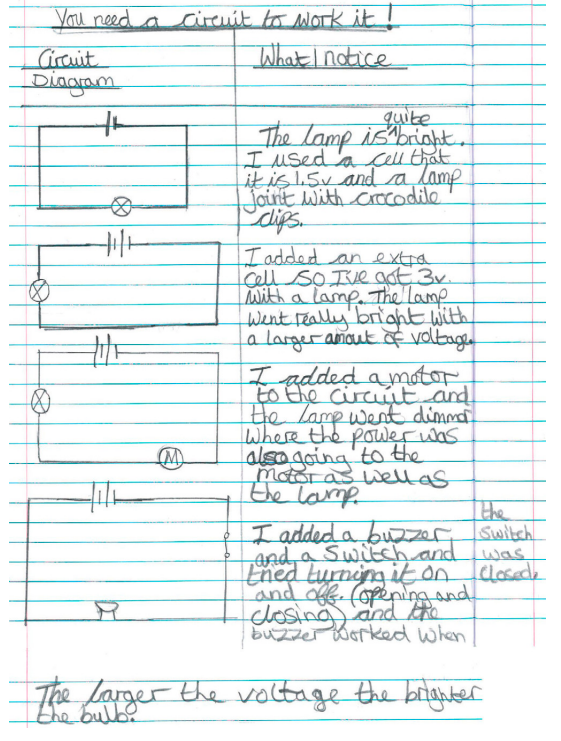 You need a circuit to work it!
Circuit
Diagram
What I notice
The lamp is ^quite bright.
I used a cell that
it is 1.5v and a lamp
joint with crocodile
clips.
I added an extra
cell so I've got 3v
with a lamp. The lamp
went really bright with
a larger amout of voltage.
I added a motor
to the circuit and
the lamp went dimmor
where the power was
also going to the
motor as well as
the lamp.
M
I added a buzzer
and a switch and
tried turning it on
and off. (opening and
closing) and the
buzzer worked when
the
switch
was
closed.
The larger the voltage the brighter
the bulb.